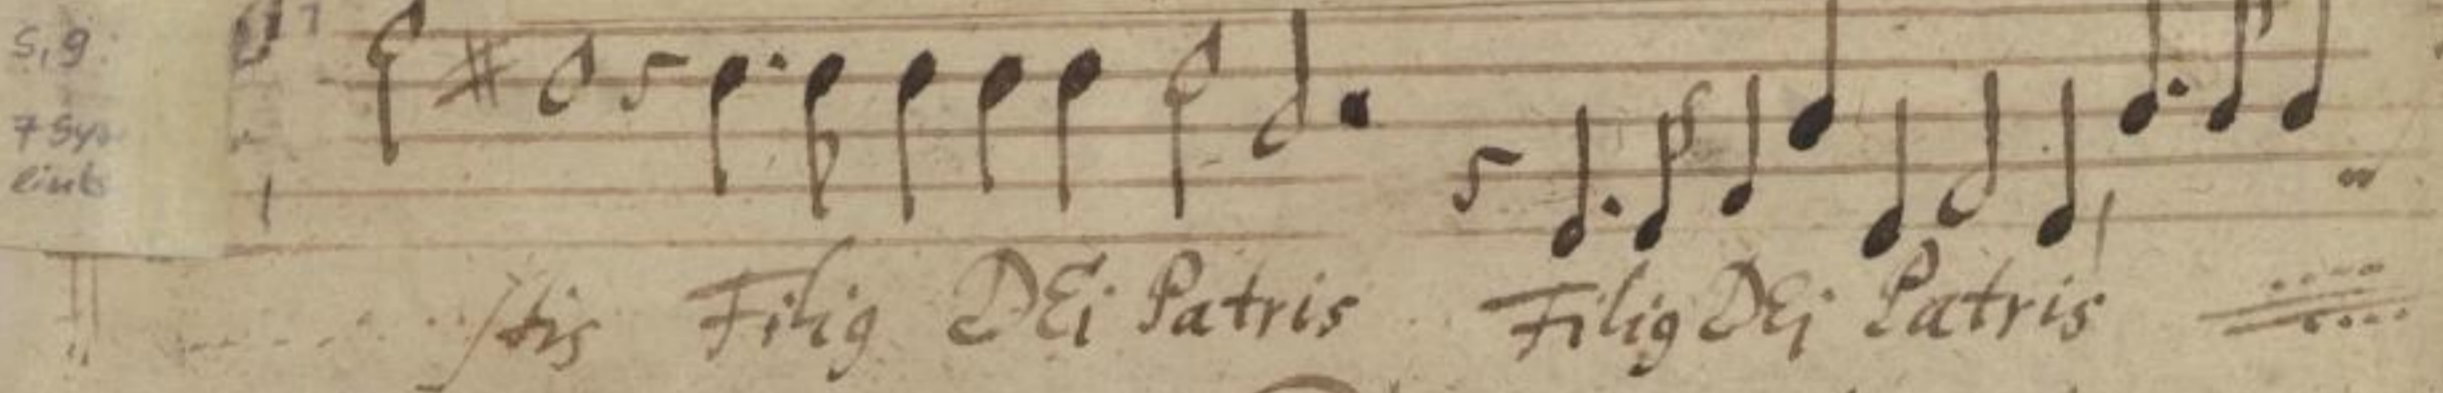 S, 9.
7 Sys
stis Filiꝰ DEi Patris Filiꝰ DEi Patris